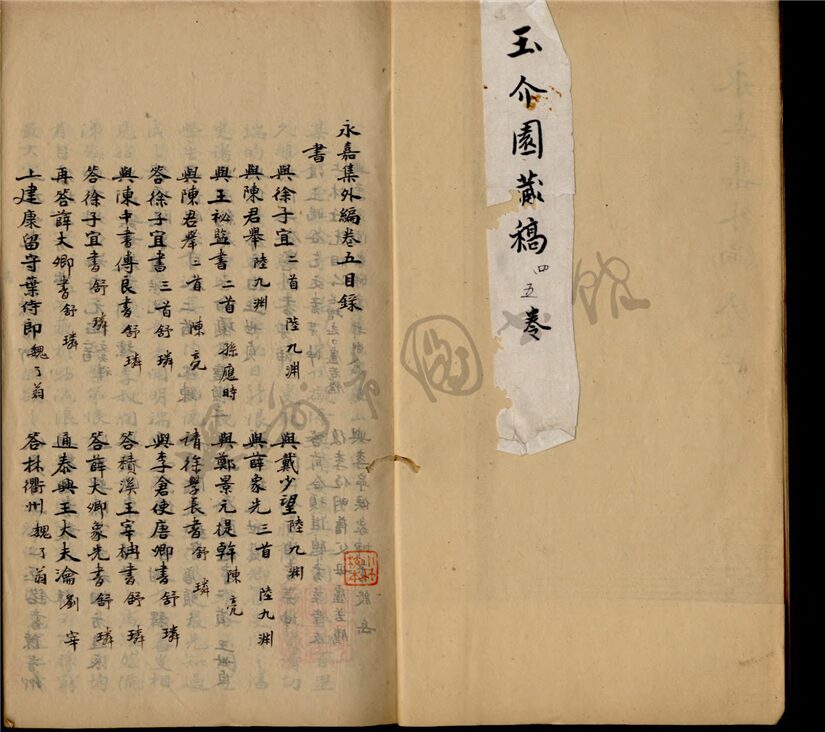 玉介園藏稿 四五卷
永嘉集外編卷五目錄
書
與徐子宜二首 陸九淵
與戴少望 陸九淵
與陳君舉 陸九淵
與薛象先三首 陸九淵
與王秘監書二首 孫應時
與鄭景元提幹 陳亮
與陳君舉二首 陳亮
請徐學長書 舒璘
答徐子宜書三首 舒璘
與李倉使唐卿書 舒璘
與陳中書傅良書 舒璘
答積溪王宰柟書 舒璘
答徐子宜書 舒璘
答薛大卿象先書 舒璘
再答薛大卿書 舒璘
通泰興王大夫瀹 劉宰
上建康留守葉侍郎 魏了翁
答林衢州 魏了翁